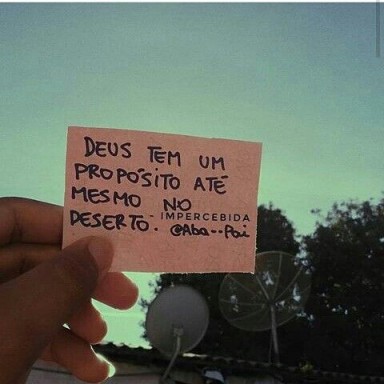 DEUS TEM UM
PROPÓSITO ATÉ
MESMO NO
DESERTO. - IMPERCEBIDA
@Aba--Pai